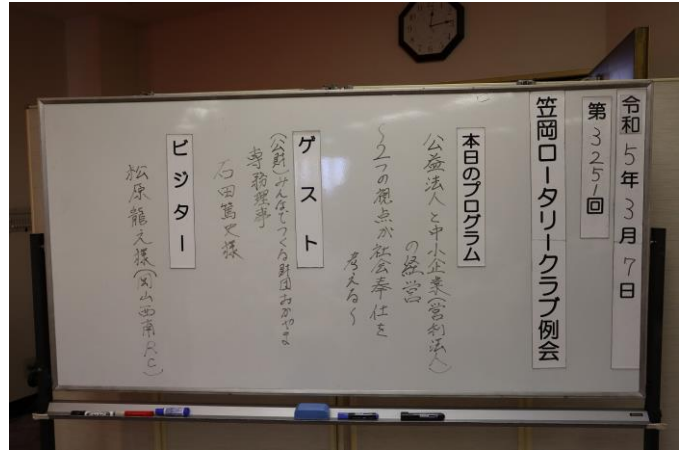 令和5年3月7日
第3251回
笠岡ロータリークラブ例会
本日のプログラム
公益法人と中小企業(営利法人)
の経営
～2つの視点が社会奉仕を
考える～
ゲスト
(公財)みんなでつくる財団おかやま
専務理事
石田篤史様
ビジター
松原龍之様(岡山西南RC)